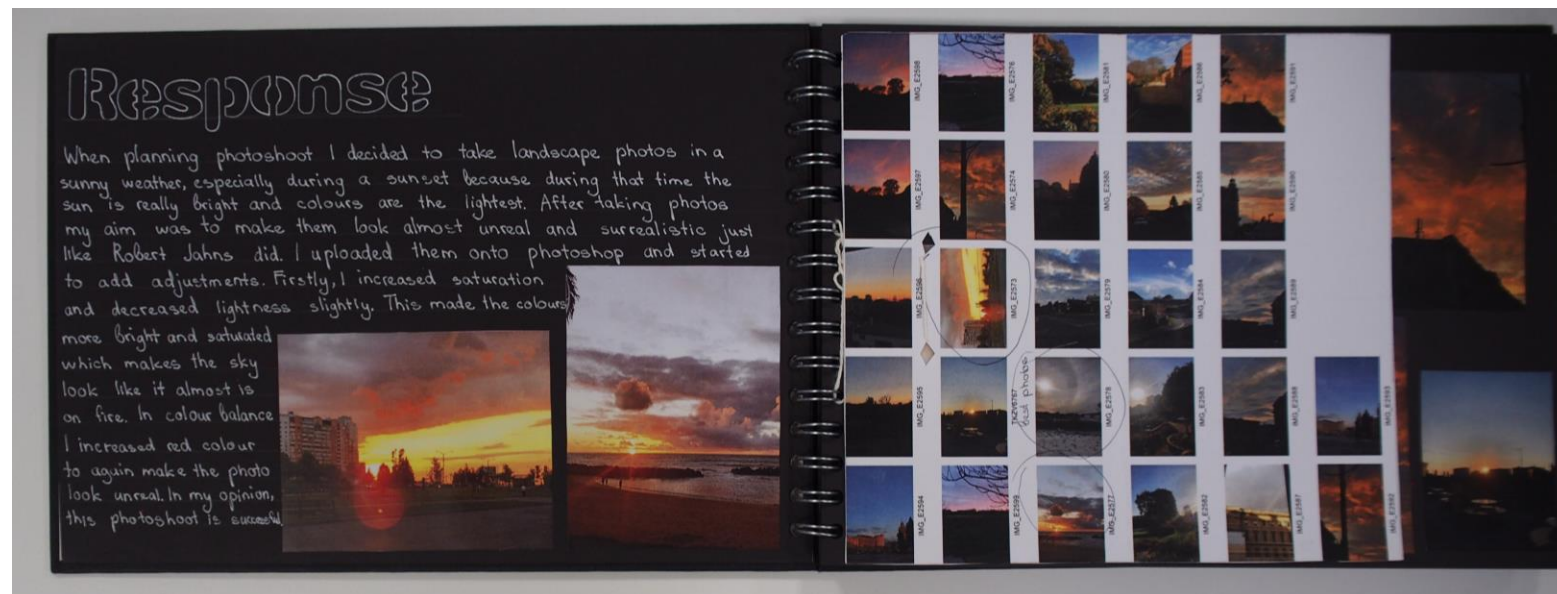 Response
When planning photoshoot I decided to take landscape photos in a
sunny weather, especially during a sunset because during that time the
sun is really bright and colours are the lightest. After taking photos
my aim was to make them look almost unreal and surrealistic just
like Robert Jahns did. I uploaded them onto photoshop and started
to add adjustments. Firstly, I increased saturation
and decreased lightness slightly. This made the colours
more bright and saturated
which makes the sky
look like it almost is
on fire. In colour balance
I increased red colour
to again make the photo
look unreal. In my opinion,
this photoshoot is successful
IMG_E2598
IMG_E2576
IMG_E2581
IMG_E2586
IMG_E2591
IMG_E2597
IMG_E2574
IMG_E2580
IMG_E2585
IMG_E2590
IMG_E2596
IMG_E2573
IMG_E2579
IMG_E2584
IMG_E2589
IMG_E2595
best photos
IMG_E2578
IMG_E2583
IMG_E2588
IMG_E2593
IMG_E2594
IMG_E2599
IMG_E2577
IMG_E2582
IMG_E2587
IMG_E2592